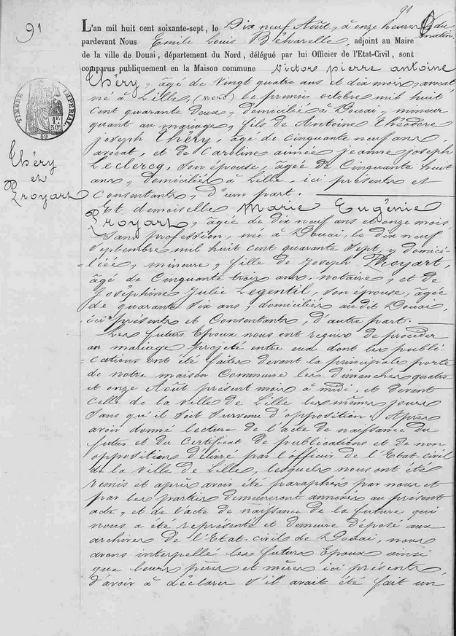 91
L'an mil huit cent soixante-sept, le Dix neuf Août, à onze heures du matin
pardevant Nous Emile Louis adjoint au Maire
de la ville de Douai, département du Nord, délégué par lui Officier de l'Etat-Civil, sont
comparus publiquement en la Maison commune, Victor Pierre Antoine
Théry, âgé de vingt quatre ans et dix mois,
né à Lille, (Nord) le premier octobre mil huit
cent quarante deux, domicilié à Douai, 
au mariage, fils de Antoine Théodore
Joseph Théry, âgé de cinquante neuf ans,
avocat, et de Caroline Aimée Jeanne Joseph
Leclercq, son épouse, âgée de cinquante huit
ans, domiciliés à Lille ici présents et
consentants, d'une part.
Théry
et
Proyart
Et demoiselle Marie Eugénie
Proyart, âgée de dix neuf ans et onze mois
sans profession, née à Douai, le dix neuf
septembre mil huit cent quarante sept, y domici-
liée, mineure, fille de Joseph Proyart,
âgé de cinquante trois ans, notaire, et de
Joséphine Julie Legentil, son épouse, âgée
de quarante six ans, domiciliés audit Douai,
ici présents et consentants, d'autre part.
Les futurs Epoux nous ont requis de procéder
au mariage projeté entre eux dont les publi-
cations ont été faites devant la principale porte
de notre maison Commune les dimanches quatre
et onze Août présent mois à midi, et devant
celle de la ville de Lille les mêmes jours
sans qu'il soit survenu d'opposition. Après
avoir donné lecture de l'acte de naissance du
futur et du certificat de publications et de non
opposition délivré par l'officier de l'Etat civil
de la ville de Lille, lesquels nous ont été
remis et après avoir été paraphés par nous et
par les parties demeureront annexés au présent
acte, et de l'acte de naissance de la future qui
nous a été représenté et demeure déposé aux
archives de l'Etat-civil de Douai, nous
avons interpellé les futurs Epoux ainsi
que leurs pères et mères ici présents,
d'avoir à déclarer s'il avait été fait un